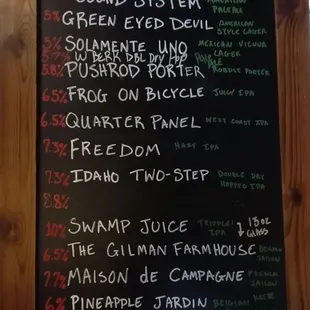 SOUND SYSTEM AMERICAN PALE ALE
5% GREEN EYED DEVIL AMERICAN STYLE LAGER
5% SOLAMENTE UNO MEXICAN VIENNA LAGER
5.7% W BERK DBL DRY HOP PALE
5.8% PUSHROD PORTER ROBUST PORTER
6.5% FROG ON BICYCLE JUICY IPA
6.5% QUARTER PANEL WEST COAST IPA
7.3% FREEDOM HAZY IPA
7.3% IDAHO TWO-STEP DOUBLE DRY HOPPED IPA
8.8%
10% SWAMP JUICE TRIPPLE IPA ↓ 13oz GLASS
6.5% THE GILMAN FARMHOUSE SAISON
7.7% MAISON de CAMPAGNE FRENCH SAISON
6% PINEAPPLE JARDIN BELGIAN